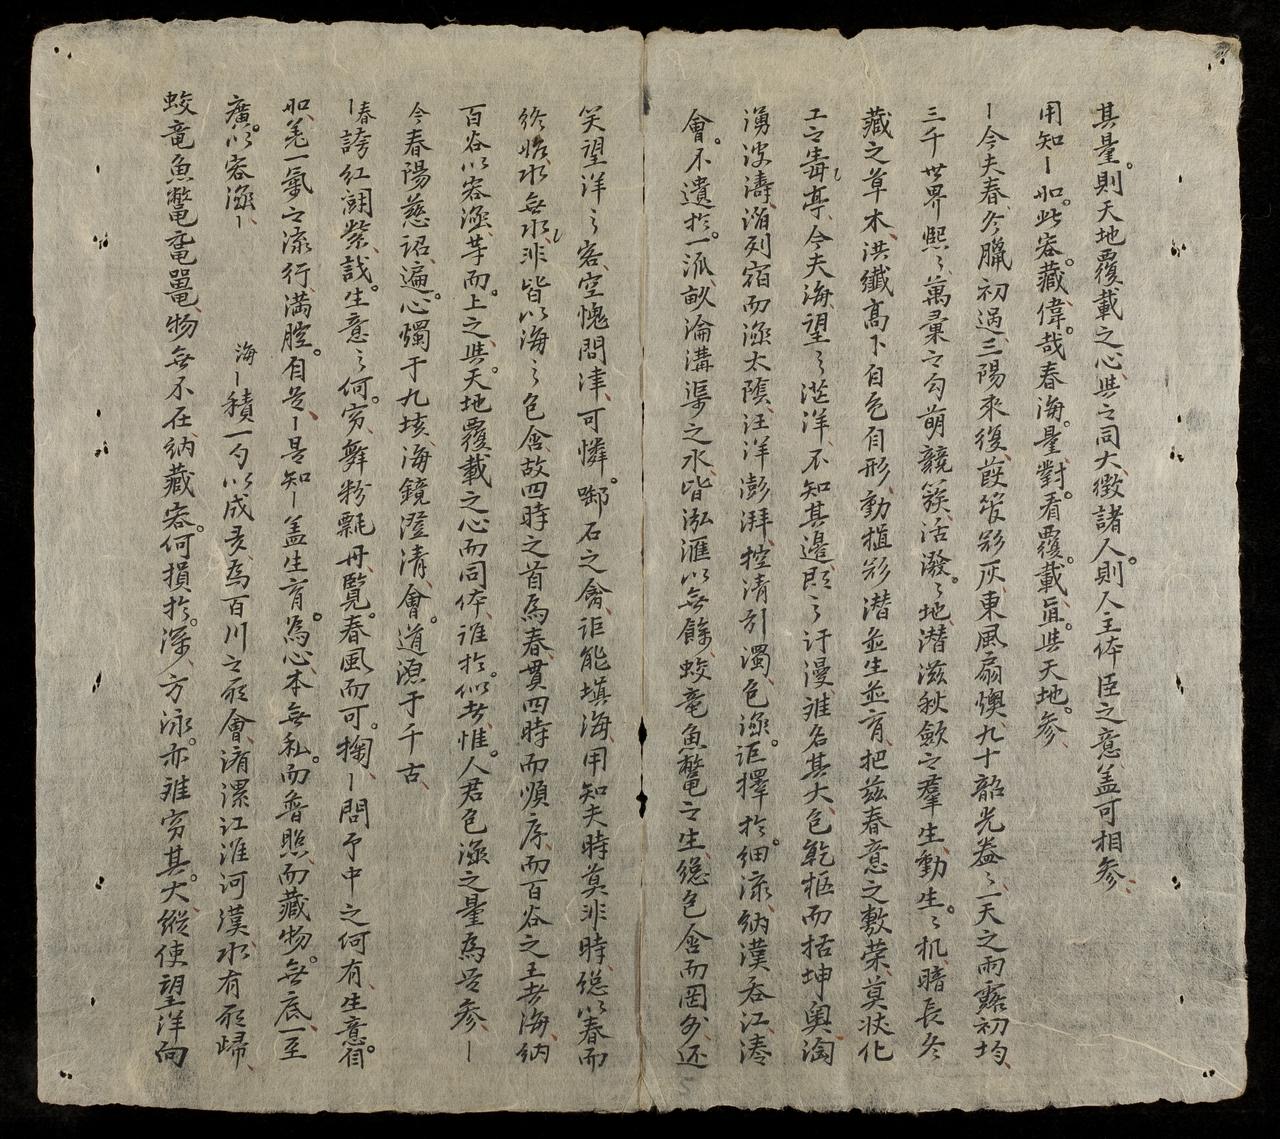 其量則天地覆載之心與之同大徵諸人則人主体臣之意盖可相參
用知〡如此容藏偉哉春海量對看覆載亘與天地參
〡今夫春冬臘初過三陽來復葭管飛灰東風扇燠九十韶光盎〻一天之雨露初均
三千世界熙〻萬彙之勾萌競簇活潑〻地潜滋秋歛之羣生動生〻机暗長冬
藏之草木洪纖高下自色自形動植飛潜並生並育把兹春意之敷荣莫状化
工之毒亭今夫海望之茫洋不知其邊即之汙漫难名其大包乾枢而括坤奥淘
湧波濤涵列宿而涵太陰汪洋澎湃控清引濁包涵讵擇於細流納漢吞江湊
會不遺於一派畝淪溝渠之水皆泓滙以無餘蛟竜魚鱉之生總包含而罔外还
笑望洋之客空愧問津可憐啣石之禽讵能填海用知夫時莫非時総以春而
終始水無水非皆以海之包含故四時之首為春貫四時而順序而百谷之王者海納
百谷以容涵芋而上之與天地覆載之心而同体誰於似者惟人君包涵之量為是參〡
今春陽慈沼遍心燭于九垓海鏡澄清會道源于千古
〡春誇紅鬪紫戠生意之何窮舞粉飄丹覽春風而可掬〡問予中之何有生意肩
如羌一氣之流行満腔自是〡是知〡盖生育為心本無私而普照而藏物無底一至
廣以容涵〡
海〡積一勺以成多為百川之所會淯漯江淮河漢水有所歸
蛟竜魚鱉黿鼉物無不在納藏容何損於深方泳亦难窮其大縱使望洋向